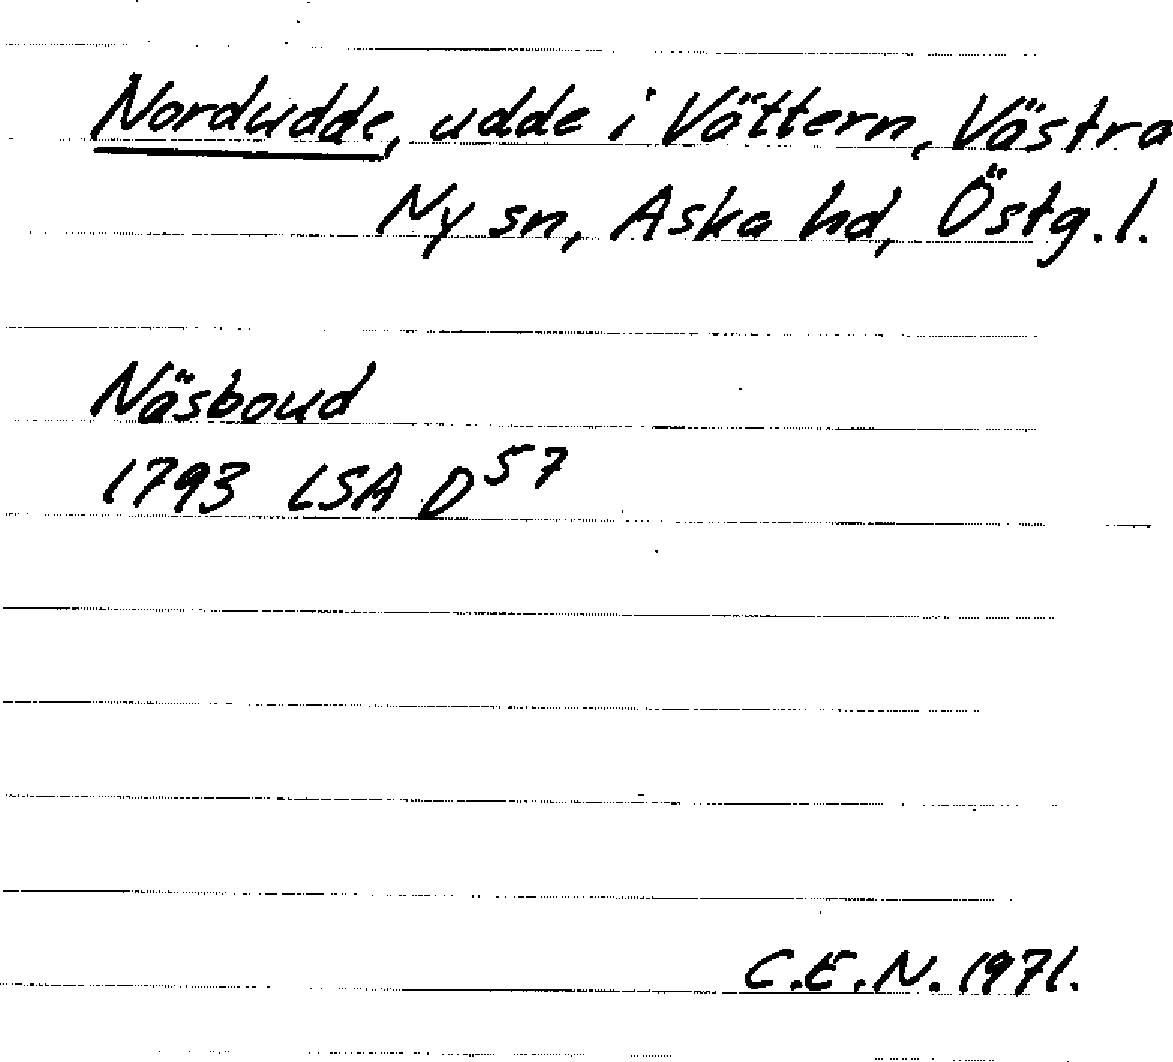 Nordudde, udde i Vättern, Västra
Ny sn, Aska hd, Östg. l.
Näsboud
1793 LSA D57
C.E.N. 1971.